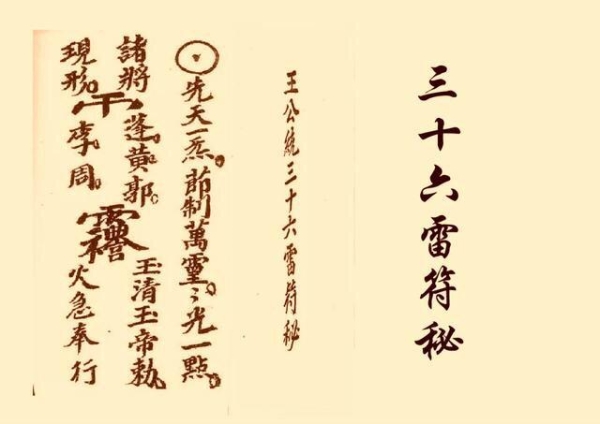 三十六雷符秘
王公統三十六雷符秘
先天一炁。節制萬靈。〻光一點。
諸將蓬。黃。郭。玉清玉帝勅
現形。李。周。火急奉行